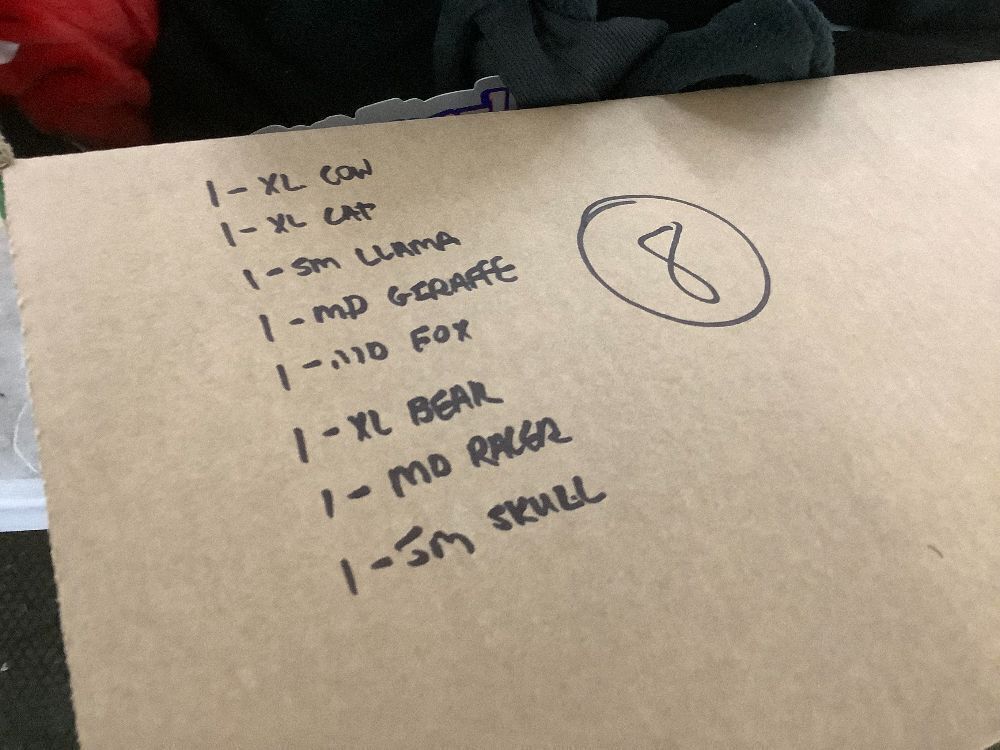 1 - XL COW
1 - XL CAT
1 - SM LLAMA
1 - MD GIRAFFE
1 - MD FOX
1 - XL BEAR
1 - MD RACER
1 - SM SKULL
8